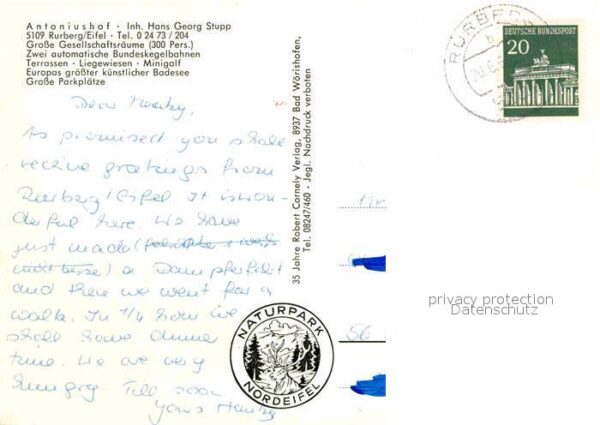 Antoniushof · Inh. Hans Georg Stupp
5109 Rurberg/Eifel · Tel. 0 24 73 / 204
Große Gesellschaftsräume (300 Pers.)
Zwei automatische Bundeskegelbahnen
Terrassen · Liegewiesen · Minigolf
Europas größter künstlicher Badesee
Große Parkplätze
Dear
As promised you shall
receive greetings from
Rurberg/Eifel. It is won-
derful here. We have
just made
a Dampferfahrt
and then we went for a
walk. In 1/4 hour we
shall have dinner
time. We are very
hungry. Till soon
Yours
35 Jahre Robert Cornely Verlag, 8937 Bad Wörishofen,
Tel. 08247/460 · Jegl. Nachdruck verboten
NATURPARK
NORDEIFEL
RURBERG
DEUTSCHE BUNDESPOST
20
56
privacy protection
Datenschutz